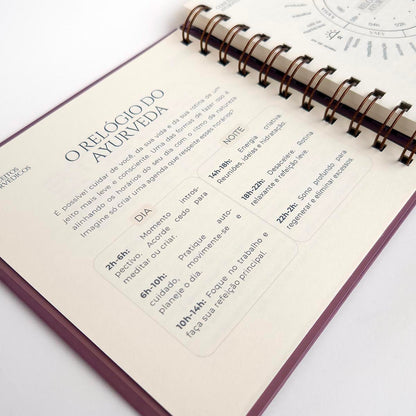 O RELÓGIO DO
AYURVEDA
É possível cuidar de você, da sua vida e da sua rotina de um
jeito mais leve e consciente. Uma das formas de fazer isso é
alinhando os horários do seu dia com o ritmo da natureza.
Imagine só criar uma agenda que respeite esses horários?
DIA
2h-6h: Momento intros-
pectivo. Acorde cedo para
meditar ou criar.
6h-10h: Pratique auto-
cuidado, movimente-se e
planeje o dia.
10h-14h: Foque no trabalho e
faça sua refeição principal.
NOITE
14h-18h: Energia criativa.
Reuniões, ideias e hidratação.
18h-22h: Desacelere. Rotina
relaxante e refeição leve.
22h-2h: Sono profundo para
regenerar e eliminar excessos.